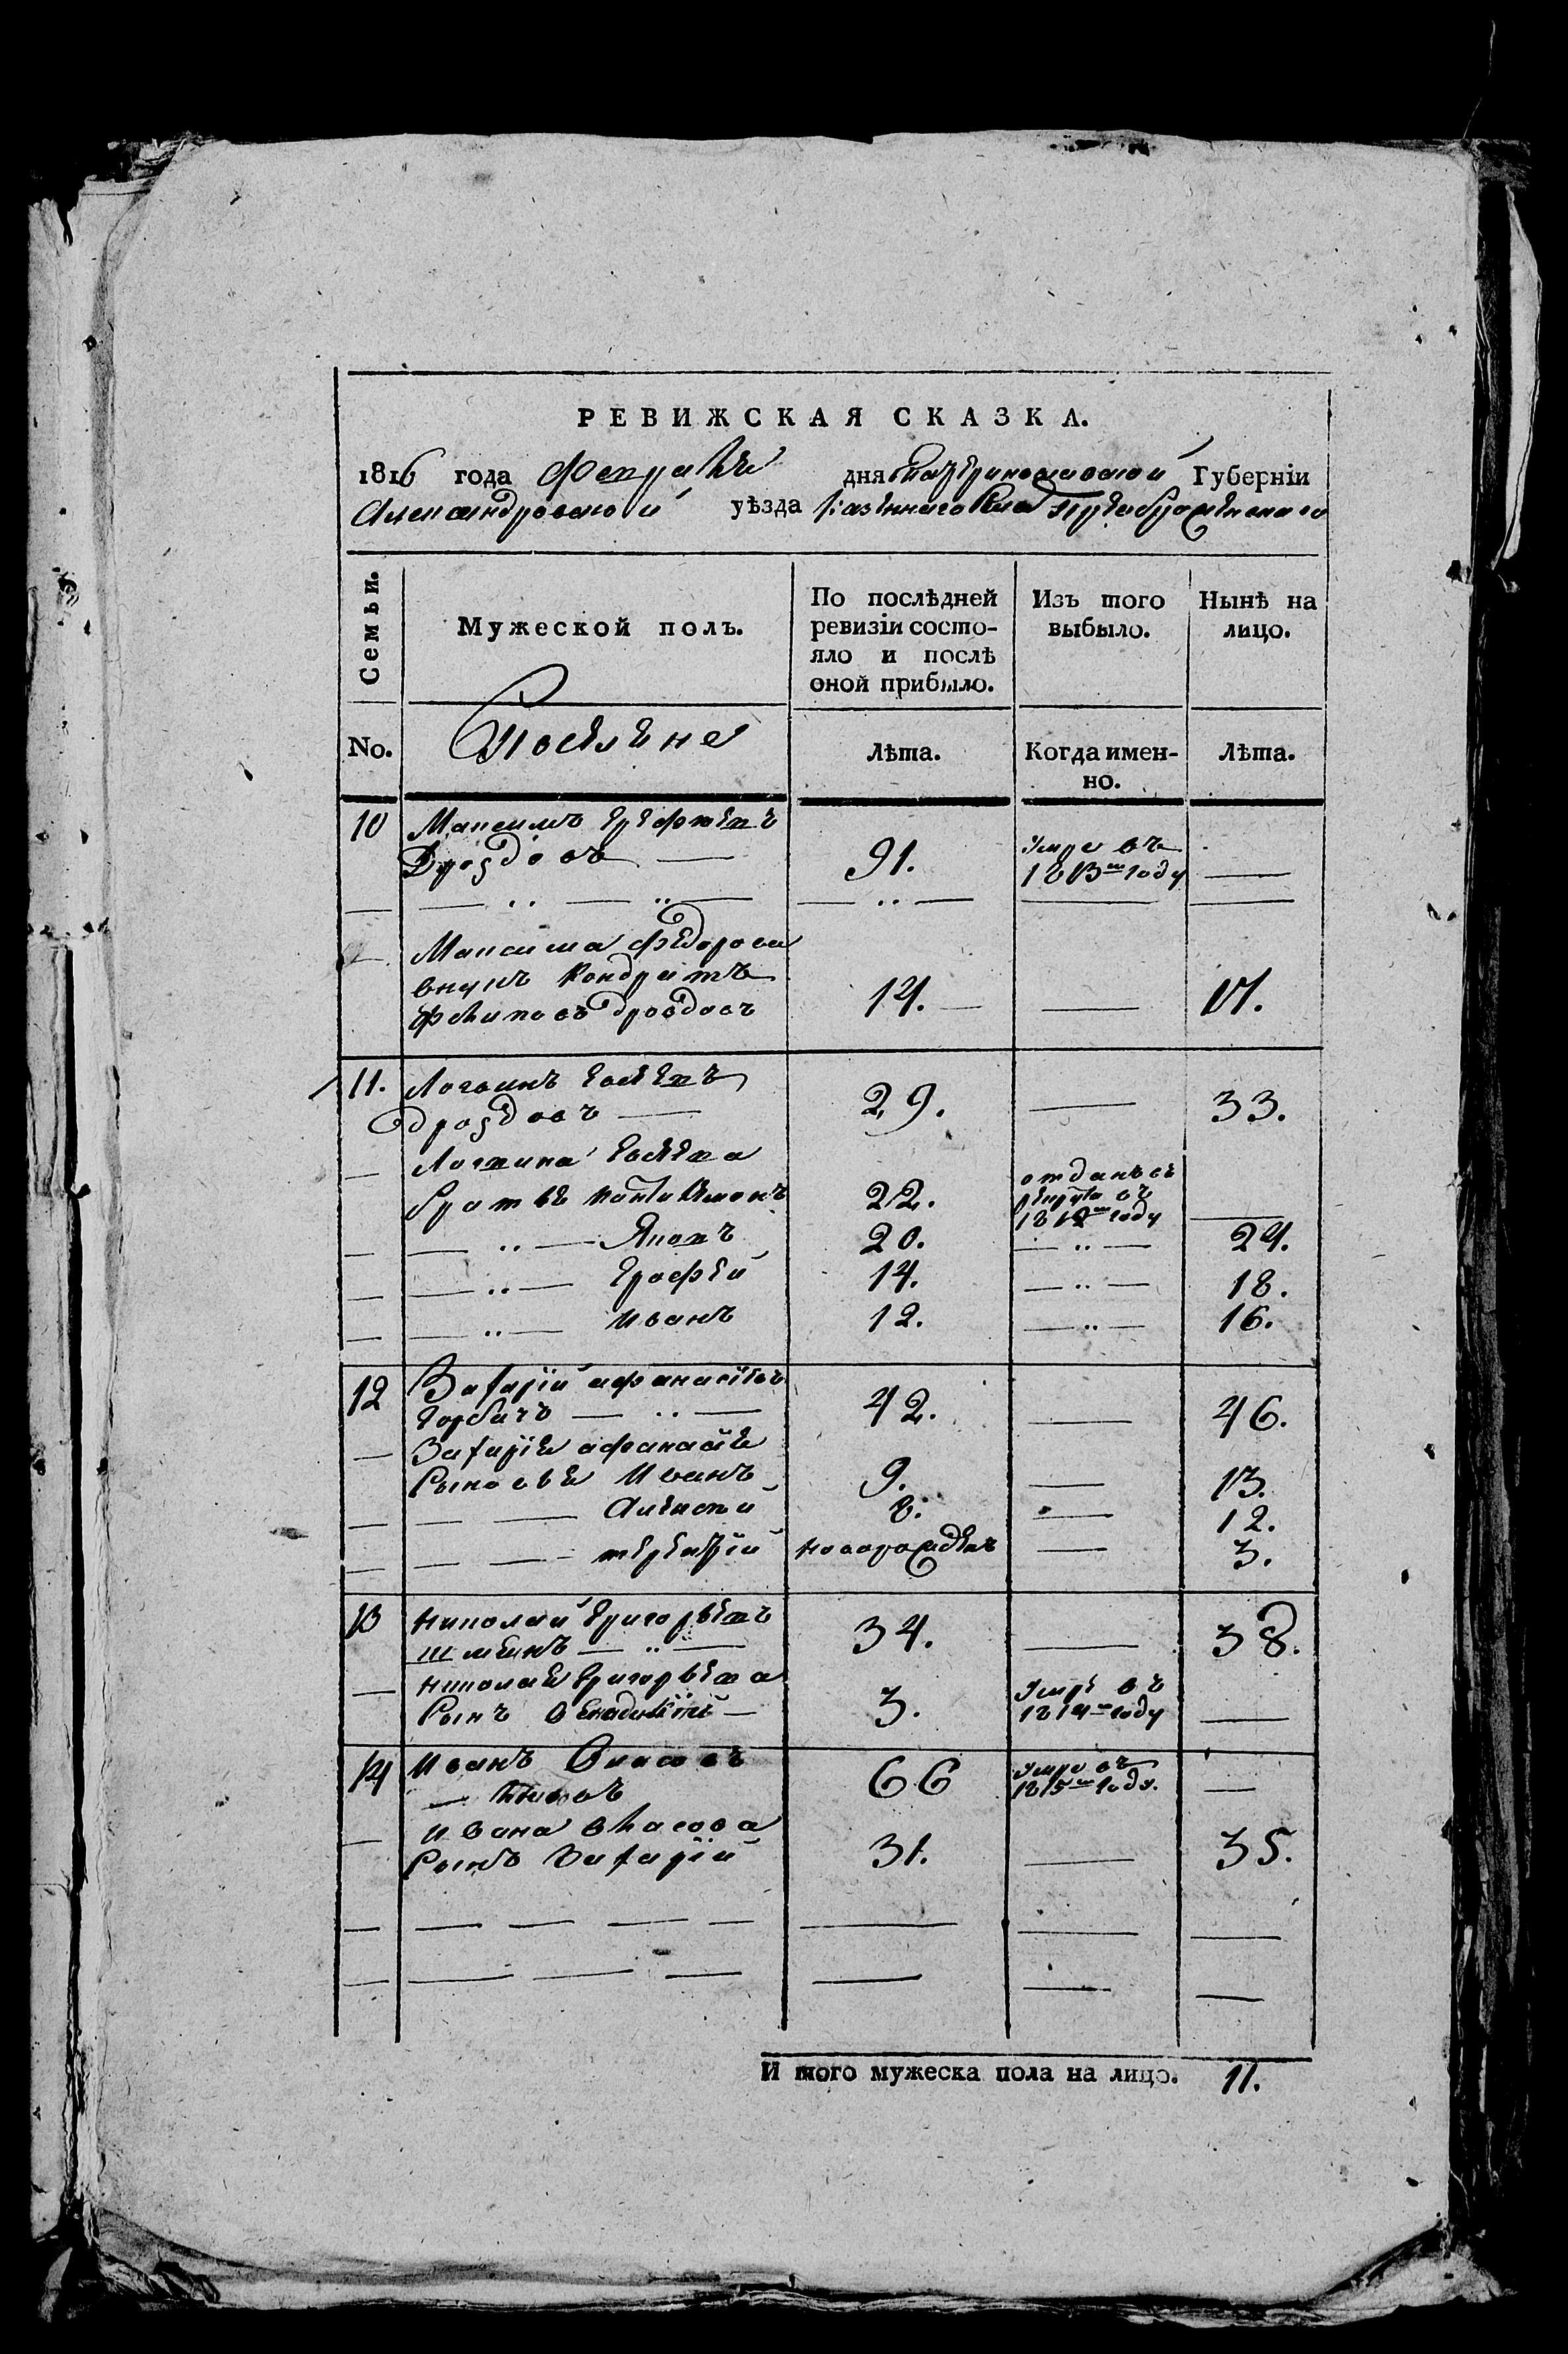 РЕВИЖСКАЯ СКАЗКА.
1816 года Февраля дня Екатеринославской Губерніи
Александровской уѣзда Казенного села Преображенского
Семьи. Мужеской полъ. По послѣдней ревизіи состо- яло и послѣ оной прибыло. Изъ того выбыло. Нынѣ на лицо.
No. Поселяне Лѣта. Когда имен- но. Лѣта.
10 Максимъ
Дроздовъ 91. Умре въ 1813м году
Максима Федорова
внукъ Кондратъ
Дроздовъ 14. 
11. Логвинъ Евсеевъ
Дроздовъ 29. 33.
Логвина Евсеева
братья Пантелимонъ 22. отданъ въ рекруты въ 1812м году
Яковъ 20. 24.
Ерофей 14. 18.
Иванъ 12. 16.
12 Захарій Афанасіевъ
Горбачъ 42. 46.
Захарія Афанасіева
Сыновья Иванъ 9. 13.
Алексей 8. 12.
Терентій новорожденъ 3.
13 Николай Григорьевъ
34. 38.
Николая Григорьева
Сынъ 3. Умре въ 1814м году
14 Иванъ Власовъ
66 Умре въ 1815м году.
Ивана Власова
Сынъ Захарій 31. 35.
И того мужеска пола на лицо. 11.